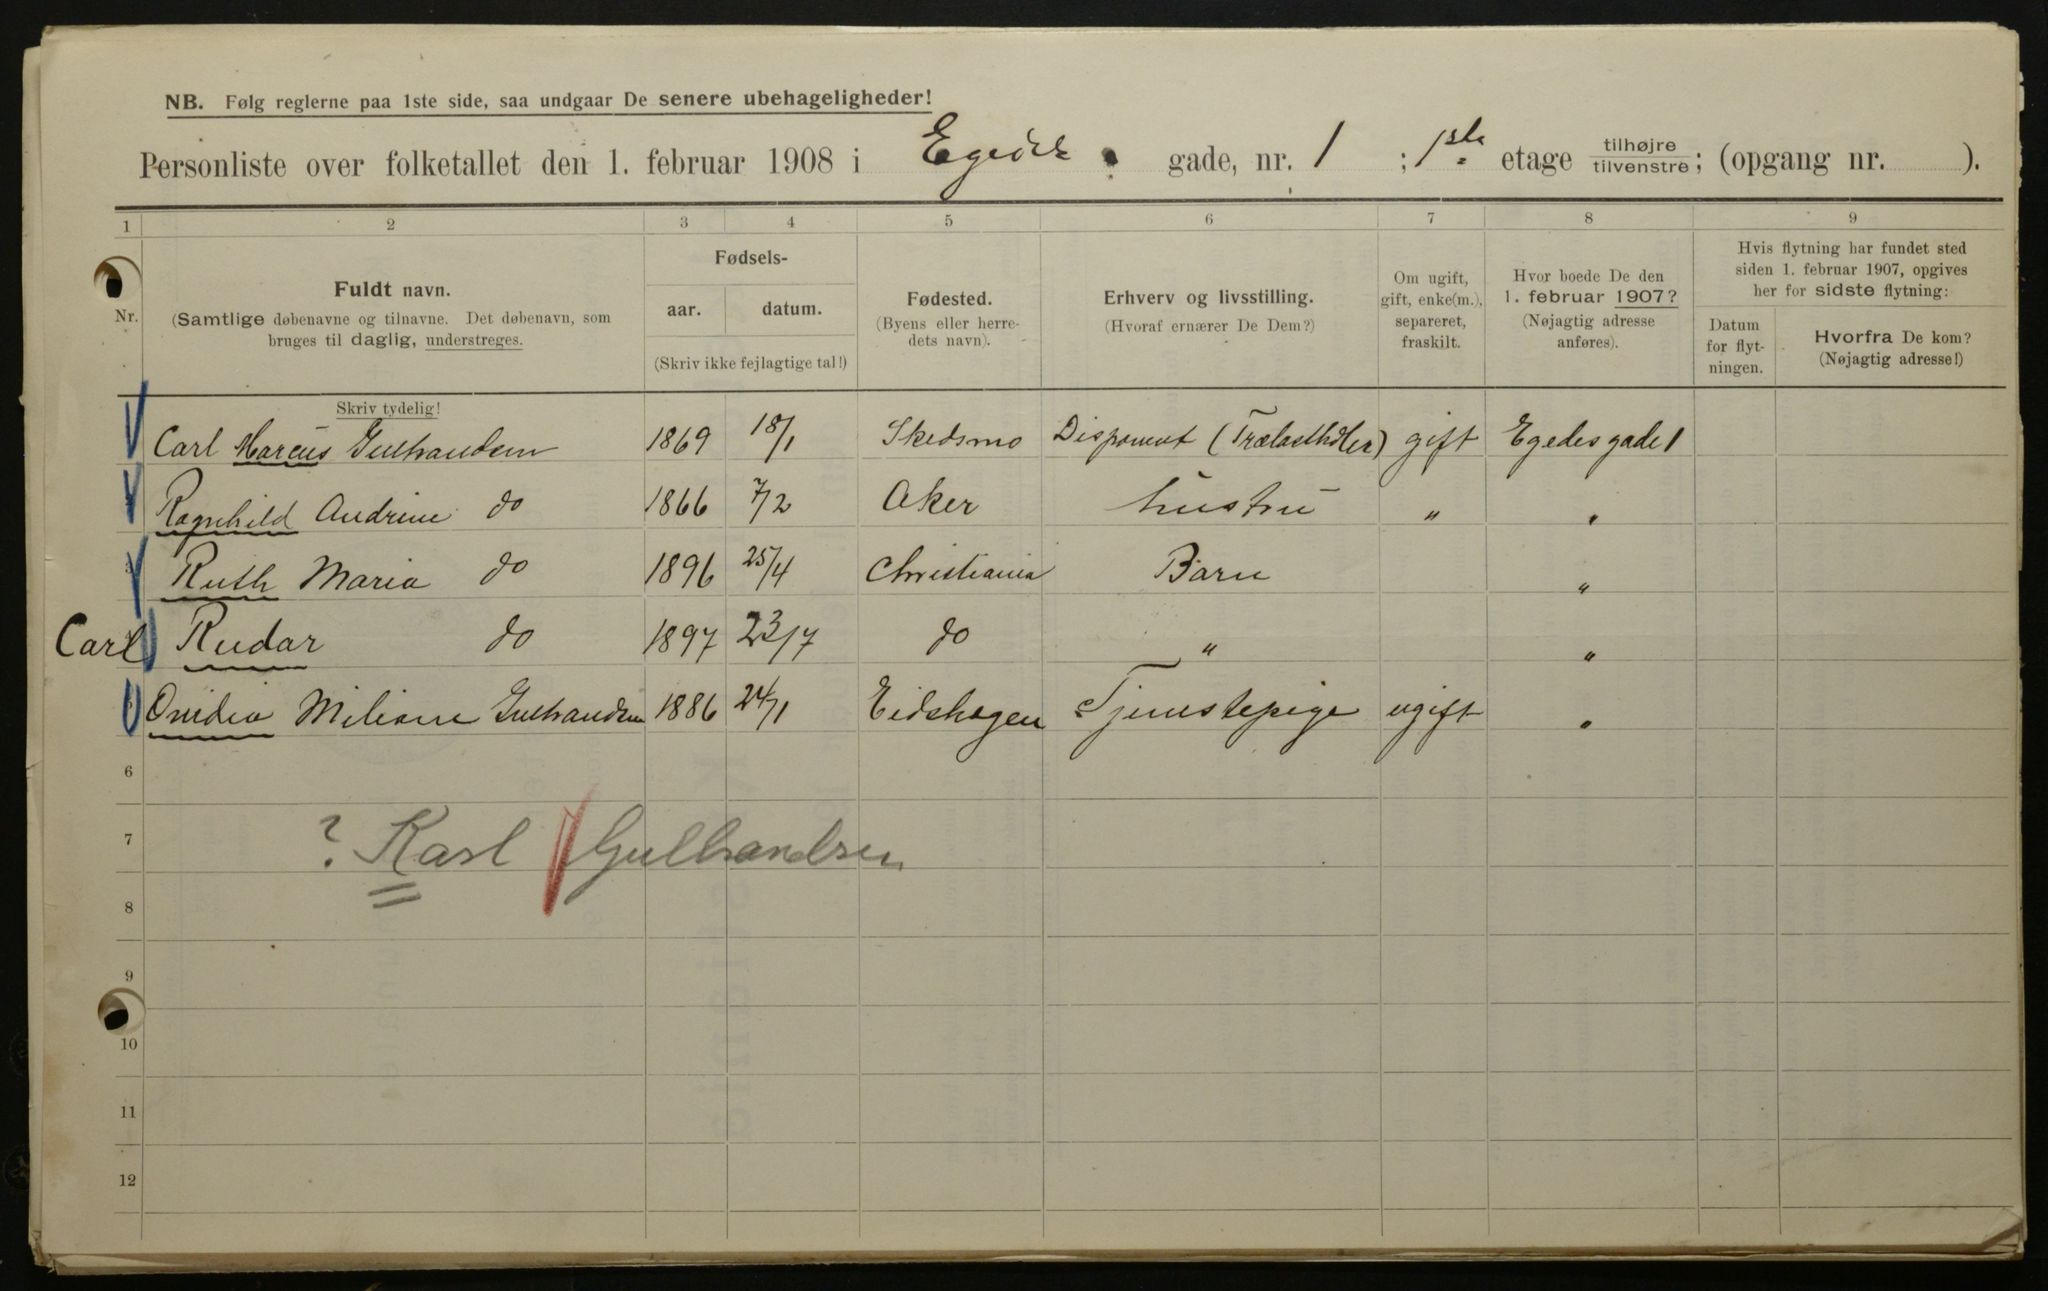 NB. Følg reglerne paa 1ste side, saa undgaar De senere ubehageligheder!
Personliste over folketallet den 1. februar 1908 i Egedes gade, nr. 1 ; 1ste etage tilhøjre/tilvenstre; (opgang nr. ).
1 2 3 4 5 6 7 8 9
Nr.
Fuldt navn.
(Samtlige døbenavne og tilnavne. Det døbenavn, som
bruges til daglig, understreges.
Skriv tydelig!
Fødsels-
aar. datum.
(Skriv ikke fejlagtige tal!)
Fødested.
(Byens eller herre-
dets navn).
Erhverv og livsstilling.
(Hvoraf ernærer De Dem?)
Om ugift,
gift, enke(m.),
separeret,
fraskilt.
Hvor boede De den
1. februar 1907?
(Nøjagtig adresse
anføres).
Hvis flytning har fundet sted
siden 1. februar 1907, opgives
her for sidste flytning:
Datum
for flyt-
ningen.
Hvorfra De kom?
(Nøjagtig adresse!)
Carl Marcus Gulbrandsen 1869 18/1 Skedsmo Disponent (Trælasthdler) gift Egedesgade 1
Ragnhild Andrine do 1866 7/2 Aker hustru " "
Ruth Maria do 1896 25/4 Christiania Barn "
Carl Rudar do 1897 23/7 do " "
Ovidia Miliane Gulbrandsen 1886 24/1 Eidskogen Tjenestepige ugift "
6
7 ? Karl Gulbrandsen
8
9
10
11
12